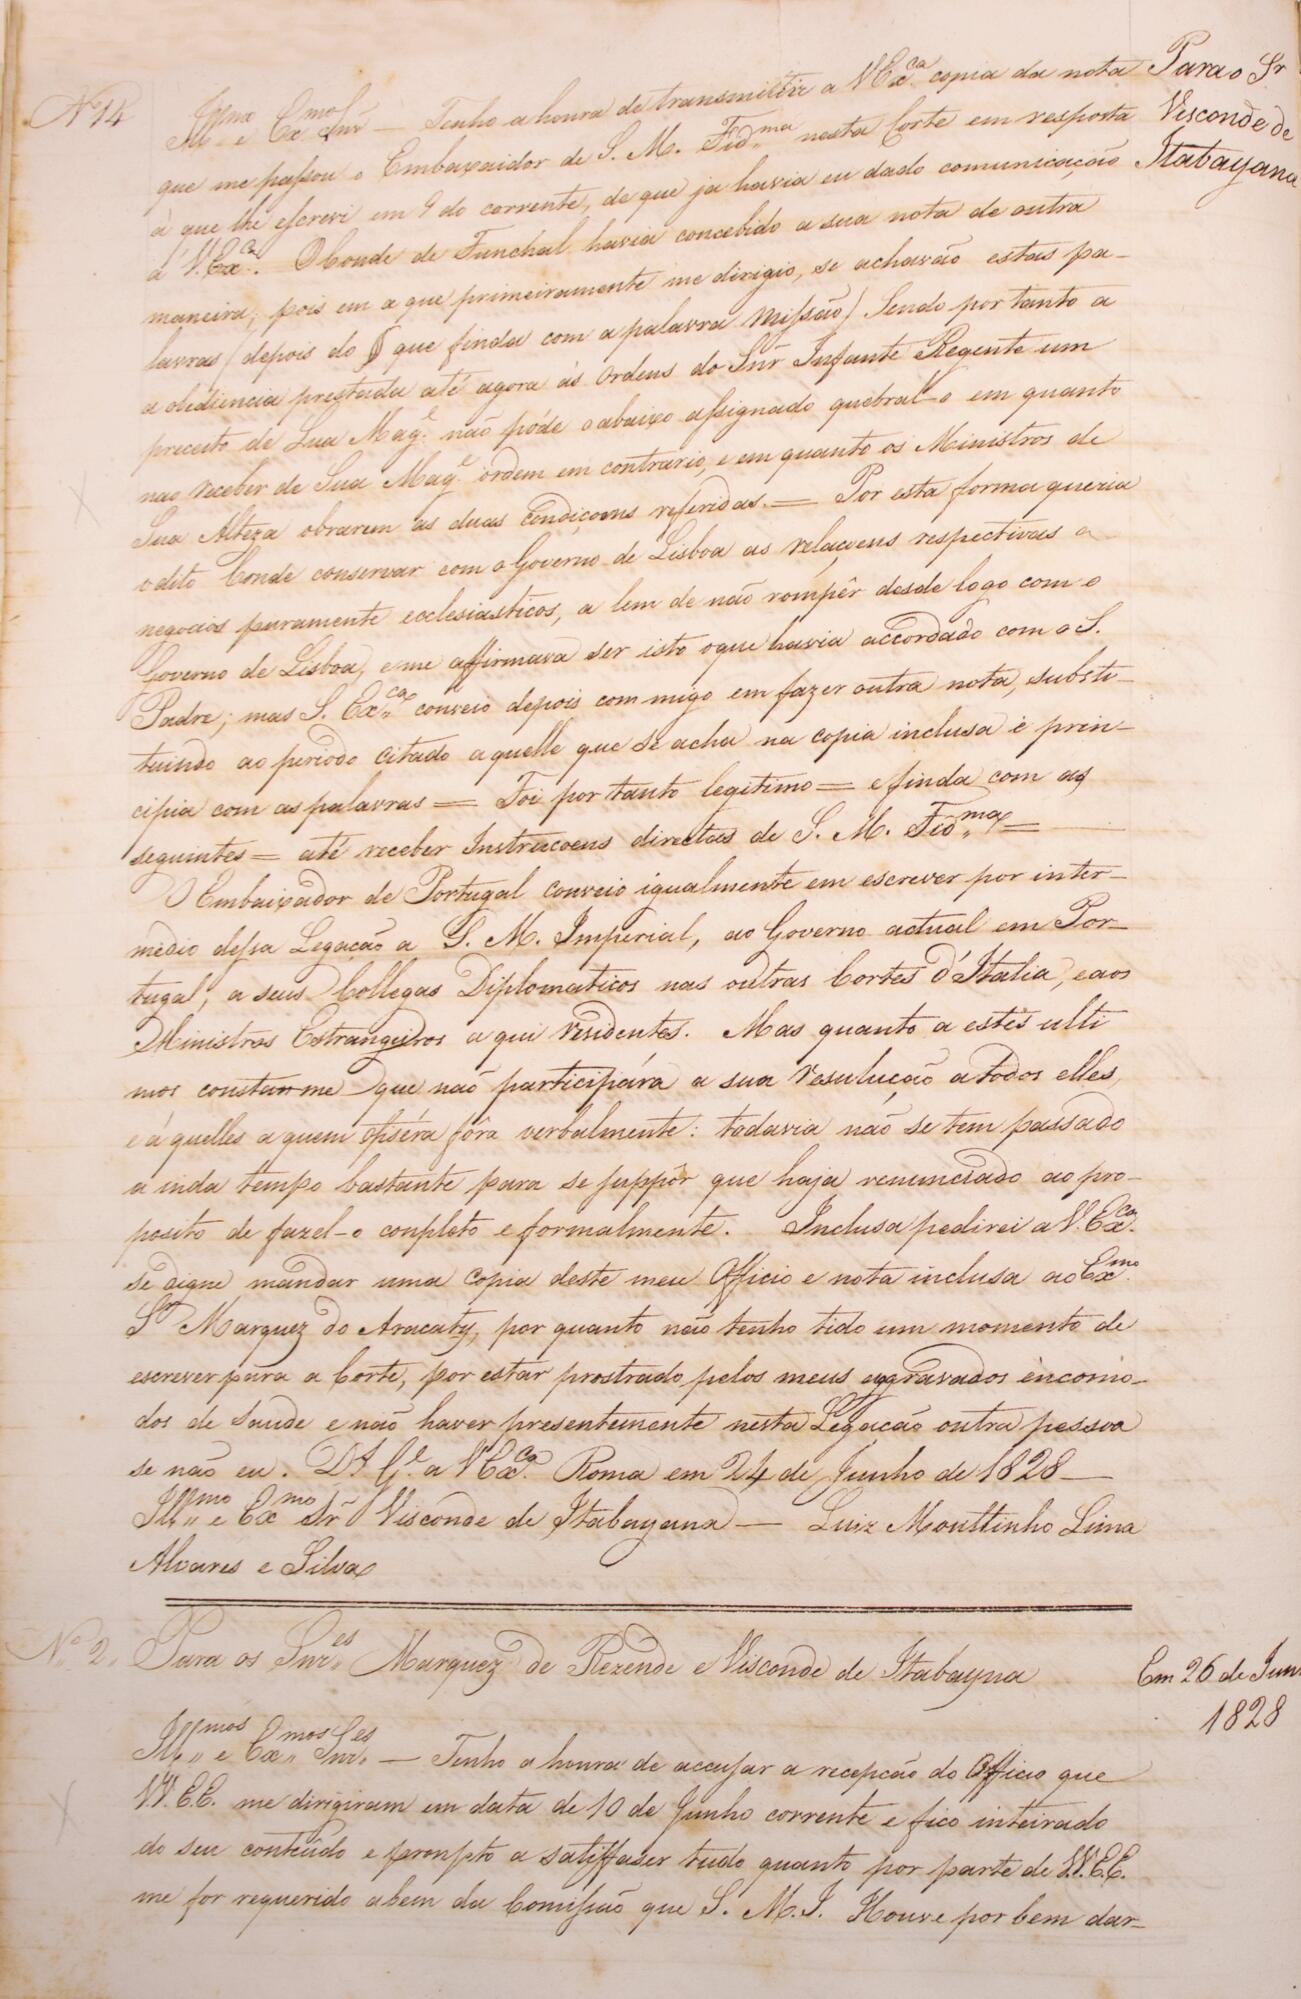 Nº 14
Para o Sr
Visconde de
Itabayana
Illmo e Exmo Snr — Tenho a honra de transmittir a V Exca copia da nota
que me passou o Embaxaidor de S. M. Fidma nesta Corte em resposta
á que lhe escrevi em 9 do corrente, de que ja havia eu dado comunicação
á V. Exca. O Conde de Funchal havia concebido a sua nota de outra
maneira; pois em a que primeiramente me dirigio, se achavão estas pa-
lavras (depois do § que finda com a palavra missão) Sendo por tanto a
a obediencia prestada até agora ás Ordens do Snr Infante Regente um
preceito de Sua Mage. não póde o abaixo assignado quebral-o em quanto
nao receber de Sua Mage. ordem em contrario, e em quanto os Ministros de
Sua Alteza obrarem as duas Condiçoens referidas. = Por esta forma queria
o dito Conde conservar com o Governo de Lisboa as relaçoens respectivas a
negocios puramente ecclesiasticos, a lem de não rompêr desde logo com o
Governo de Lisboa, e me affirmava ser isto o que havia accordado com o S.
Padre; mas S. Exca conveio depois com migo em fazer outra nota, substi-
tuindo ao periodo citado aquelle que se acha na copia inclusa e prin-
cipia com as palavras = Foi por tanto legitimo = e finda com as
seguintes = até receber Instrucoens directas de S. M. Fidma =
O Embaixador de Portugal conveio igualmente em escrever por inter-
medio dessa Legação a S. M. Imperial, ao Governo actual em Por-
tugal, a seus Collegas Diplomaticos nas outras Cortes d'Italia, e aos
Ministros Estrangeiros a qui residentes. Mas quanto a estes ulti
mos constar me que não participára a sua resulução a todos elles,
e á quelles a quem fiséra fôra verbalmente: todavia não se tem passado
a inda tempo bastante para se suppôr que haja renunciado ao pro-
posito de fazel-o conpleto e formalmente. Inclusa pedirei a V. Exca.
se digne mandar uma copia deste meu Officio e nota inclusa ao Exmo.
Sr Marquez do Aracaty, por quanto não tenho tido um momento de
escrever para a Corte, por estar prostrado pelos meus aggravados incomo-
dos de saude e não haver presentemente nesta Legação outra pessoa
se não eu. Ds Ge. a V Exca. Roma em 24 de Junho de 1828 —
Illmo e Exmo Sr Visconde de Itabayana — Luiz Mouttinho Lima
Alvares e Silva
Nº 2.
Para os Snres Marquez de Rezende e Visconde de Itabayna
Em 26 de Jun
1828
Illmos e Exmos Snres — Tenho a honra de accusar a recepção do Officio que
VV. EE. me dirigiram em data de 10 de Junho corrente e fico inteirado
do seu conteúdo e prompto a satisfaser tudo quanto por parte de VV. EE.
me for requerido a bem da Comissão que S. M. I. Houve por bem dar-